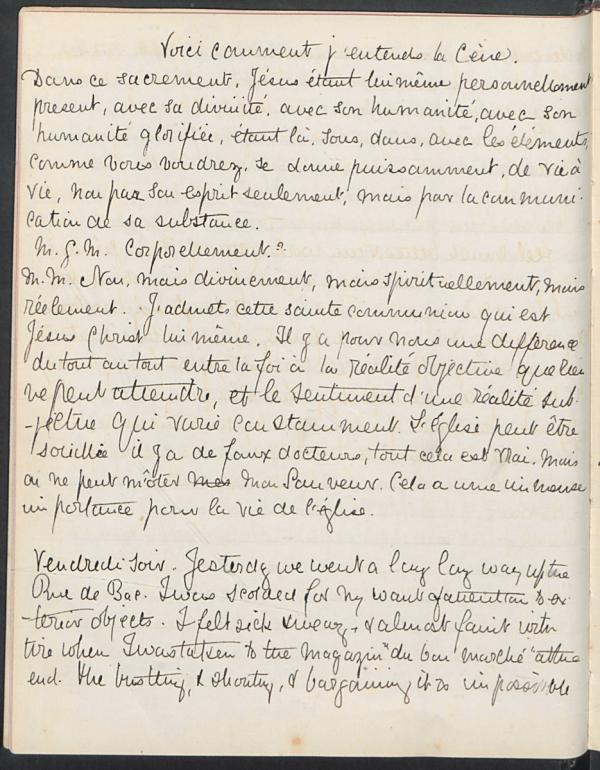 Voici comment j'entends la Cène.
Dans ce sacrement, Jésus étant lui même personnellement
present, avec sa divinité, avec son humanité, avec son
humanité glorifiée, étant là, sous, dans, avec les éléments,
comme vous voudrez, se donne puissamment, de vie à
vie, non par son esprit seulement, mais par la communi-
cation de sa substance.
M. G. M. Corporellement?
M. M. Non, mais divinement, mais spirituellement, mais
réelement. J'admets cette sainte communion qui est
Jésus Christ lui même. Il y a pour nous une différence
du tout au tout entre la foi à la réalité objective que rien
ne peut atteindre, et le sentiment d'une réalité sub-
-jective qui varie constamment. L'Eglise peut être
souillée il y a de faux docteurs, tout cela est vrai, mais
on ne peut m'ôter mes mon Sauveur. Cela a une immense
importance pour la vie de l'église.
Vendredi soir. Yesterday we went a long long way up the
Rue de Bac. I was scolded for my want of attention to ex-
-terior objects. I felt sick & weary, & almost faint with
tire when I was taken to the Magazin "du bon marché" at the
end. The bustling, & shouting, & bargaining it is impossible